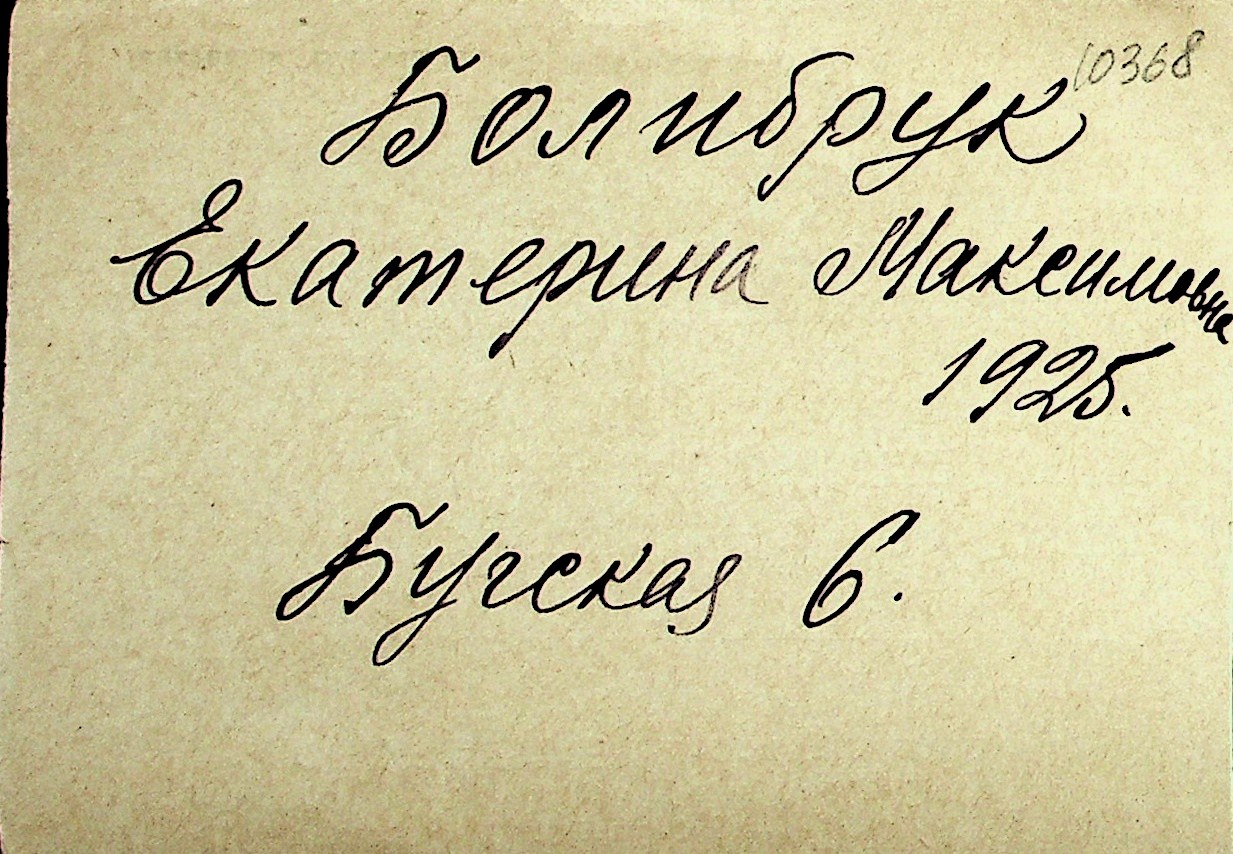 10368
Болибрук
Екатерина Максимовна
1925.
Бугская 6.